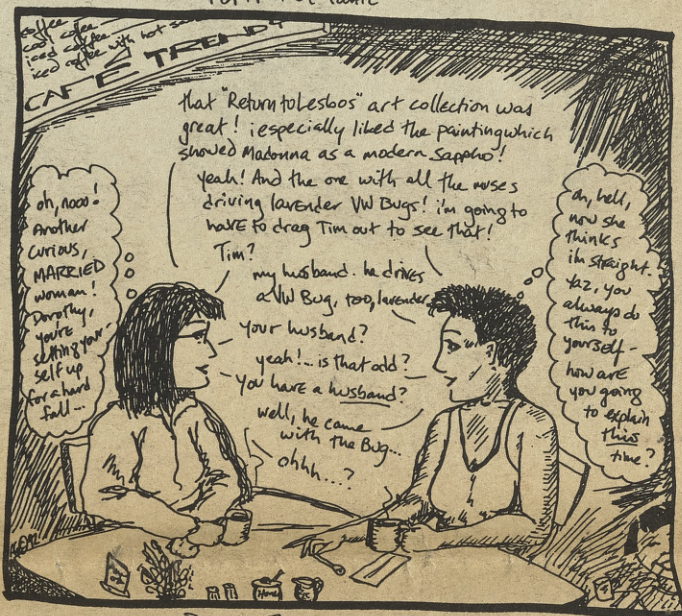 coffee
cold coffee
iced coffee
iced coffee with hot
CAFÉ TRENDY
that "Return to Lesbos" art collection was
great! i especially liked the painting which
showed Madonna as a modern Sappho!
yeah! And the one with all the muses
driving lavender VW Bugs! i'm going to
have to drag Tim out to see that!
Tim?
my husband. he drives
a VW Bug, too, lavender.
your husband?
yeah!... is that odd?
you have a husband?
well, he came
with the Bug...
ohhh...?
oh, nooo!
Another
curious,
MARRIED
woman!
Dorothy,
you're
setting your-
self up
for a hard
fall...
oh, hell,
now she
thinks
i'm straight.
Yaz, you
always do
this to
yourself -
how are
you going
to explain
this
time?
Honey